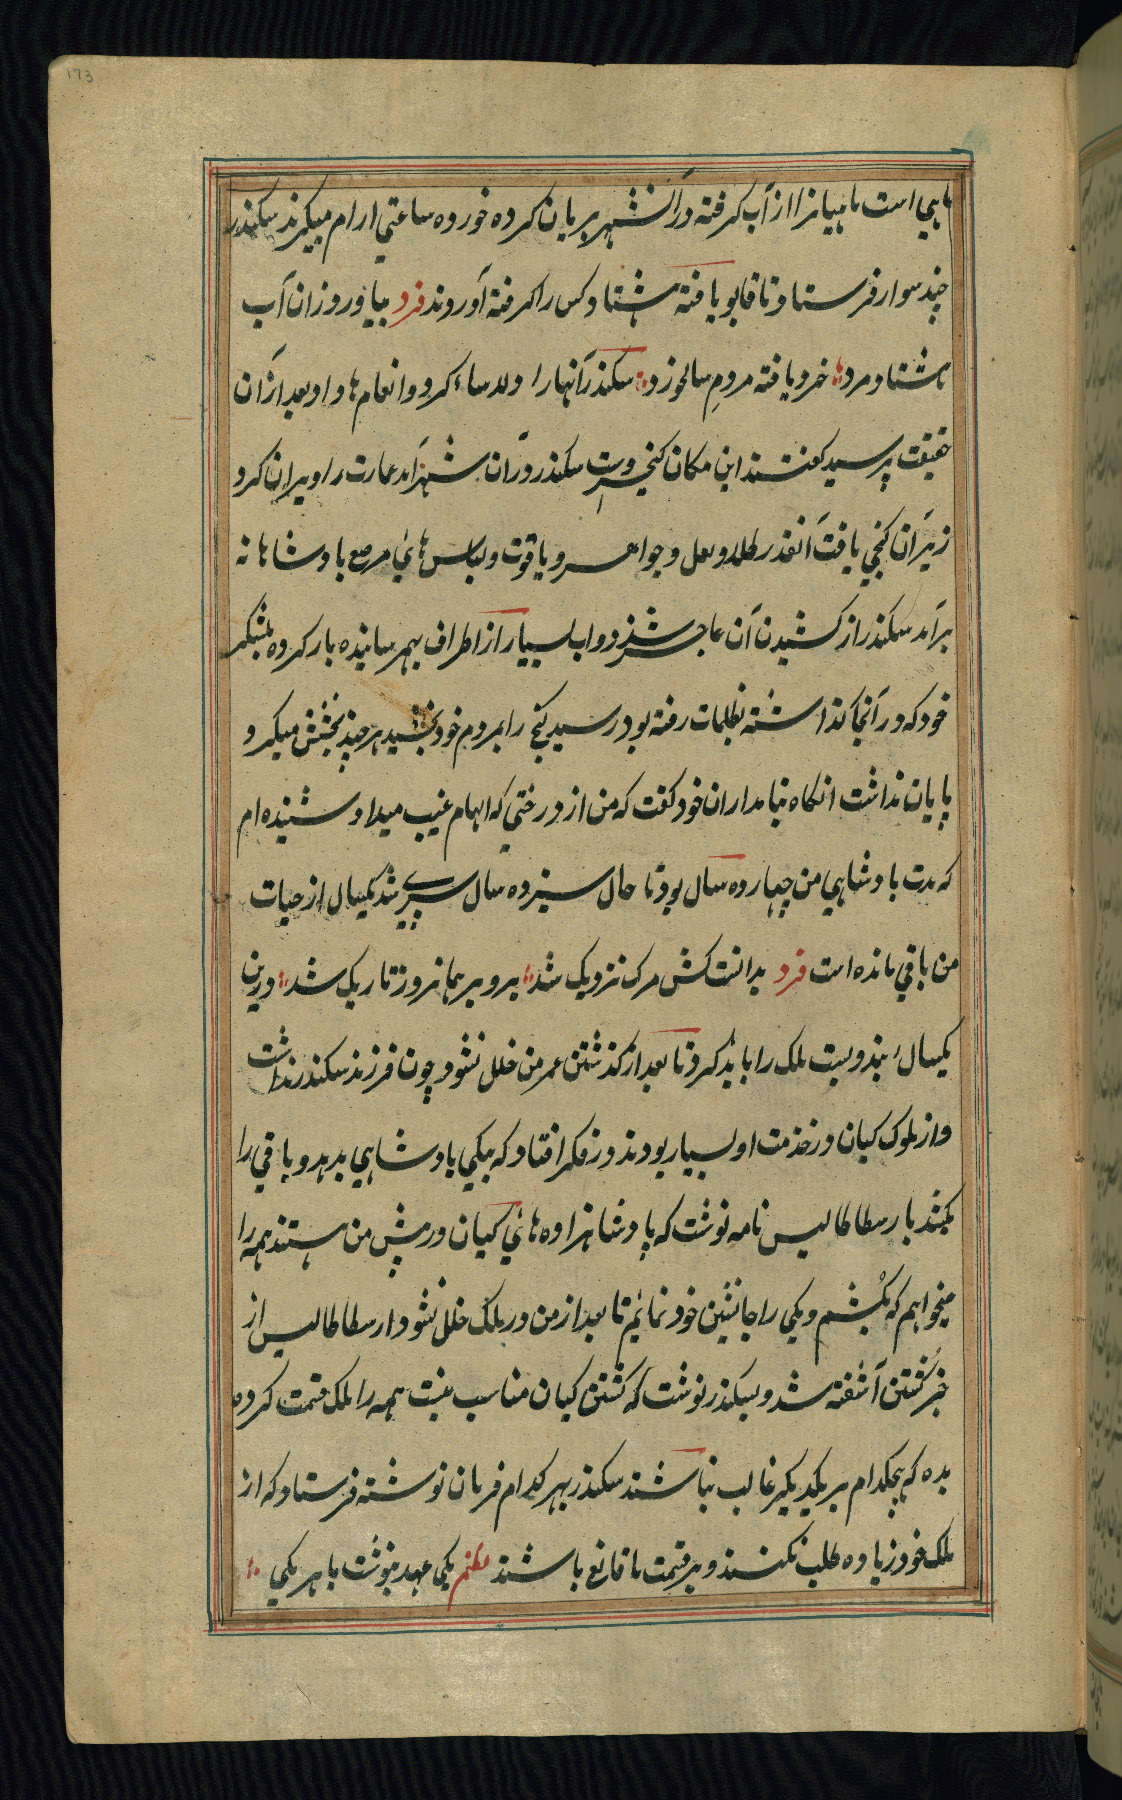 173
ماهي است ماهیانرا از آب گرفته در آتش بریان کرده خورده ساعتي ارام میگیرند سکندر
چند سوار فرستاد تا قابو یافته هشتاد کس را گرفته آوردند فرد بیاورد زان آب
هشتاد مرد خرد یافته مردم سالخورد سکندر آنها را دلاسا کرد و انعام ها داد بعد ازان
حقیقت پرسید گفتند این مکان کیخسروست سکندر دران شهر آمد عمارت را ویران کرد
زیر آن گنجي یافت آنقدر طلا و لعل و جواهر و یاقوت و لباس هاي مرصع بادشاهانه
برآمد سکندر از کشیدن آن عاجز شد دواب بسیار از اطراف بهم رسانیده بار کرده بلشکر
خود که در آنجا گذاشته بظلمات رفته بود رسید گنج را بمردم خود بخشید هر چند بخشش میکرد
پایان نداشت انگاه بنامداران خود گفت که من از درختي که الهام غیب میداد شنیده ام
که مدت بادشاهي من چهارده سال بود تا حال سیزده سال سپري شد یکسال از حیات
من باقي مانده است فرد بدانست کش مرگ نزدیک شد برو بر همانروز تاریک شد درین
یکسال بندوبست ملک را باید کرد تا بعد از گذشتن عمر من خلل نشود چون فرزند سکندر نداشت
و از ملوک کیان در خدمت او بسیار بودند در فکر افتاد که بیکي بادشاهي بدهد و باقي را
بکشد بارسطاطالیس نامه نوشت که پادشاهزاده هاي کیان در پیش من هستند همه را
میخواهم که بکشم و یکي را جانشین خود نمایم تا بعد از من در ملک خلل نشود ارسطاطالیس از
خبر کشتن آشفته شد و بسکندر نوشت که کشتن کیان مناسب نیست همه را ملک قسمت کرده
بده که هیچکدام بر یکدیگر غالب نباشند سکندر بهر کدام فرمان نوشته فرستاد که از
ملک خود زیاده طلب نکنند و بر قسمت ما قانع باشند نظم یکي عهد بنوشت با هر یکي